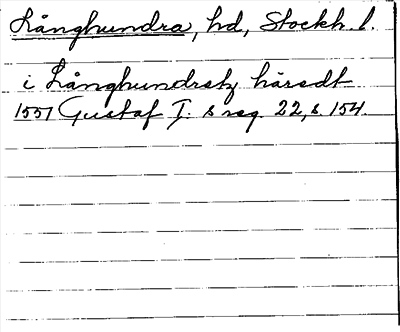 Långhundra, hd, Stockh. l.
i Långhundretz häredt
1551 Gustaf I:s reg. 22, s. 154.